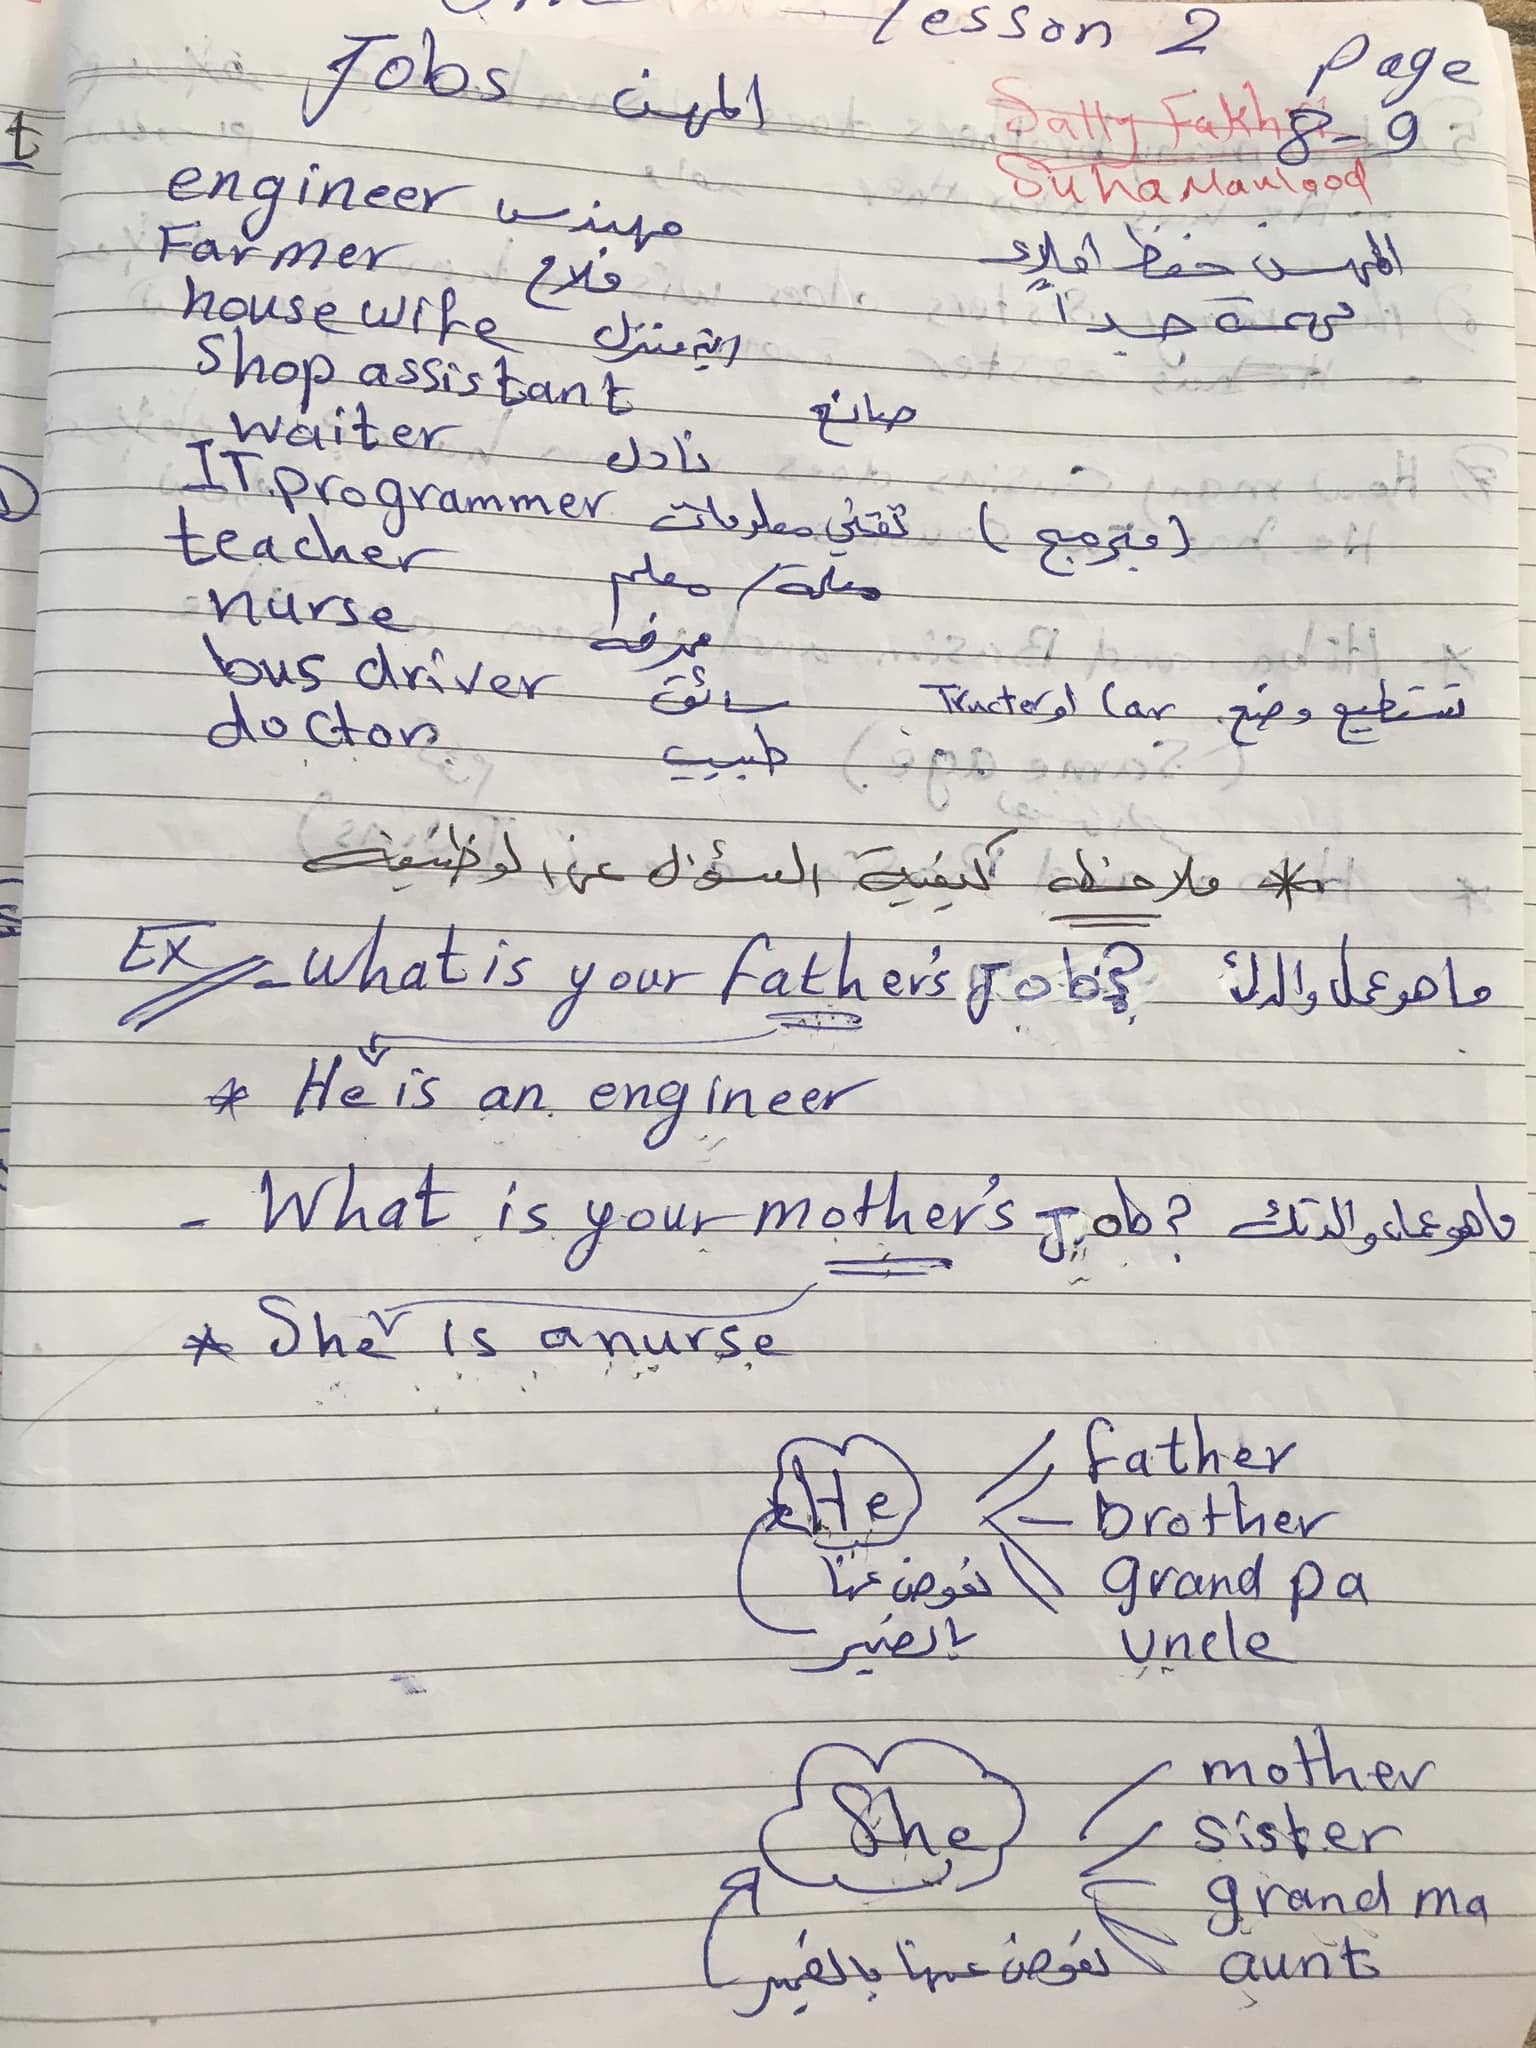 lesson 2 page
Jobs المهن 8-9
Sally Fakhri
Suha Maulood
engineer مهندس
Farmer فلاح
المهن حفظ املاء
مهمة جداً
house wife ربة منزل
Shop assistant صانع
waiter نادل
IT. programmer تقني معلومات (مبرمج)
teacher معلم / معلمة
nurse ممرضه
bus driver سائق تستطيع وضع Car او Tructer
doctor طبيب
* ملاحظه كيفية السؤال عن الوظيفه
EX - What is your father's Job? ما هو عمل والدك
* He is an engineer
- What is your mother's Job? ما هو عمل والدتك
* She is a nurse
He father
brother
نعوض عنها grand pa
بالضمير uncle
She mother
sister
grand ma
نعوض عنها بالضمير aunt